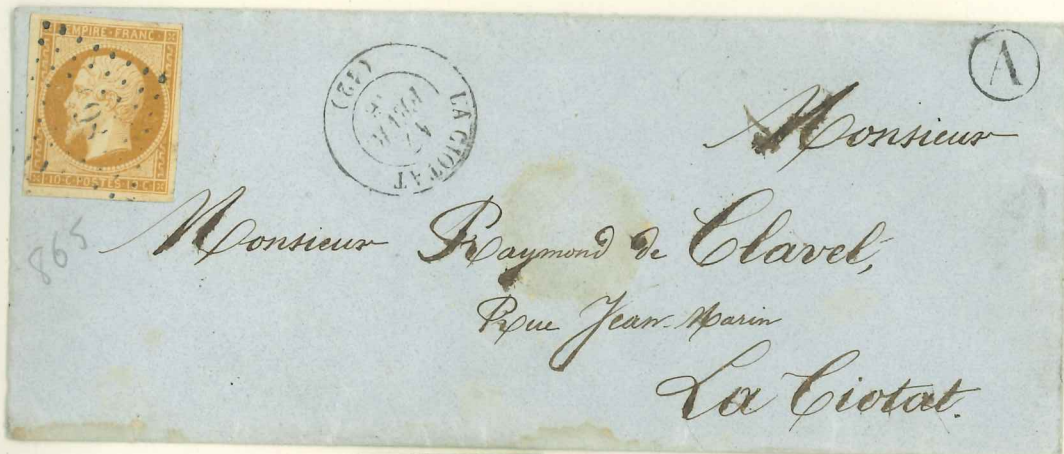 EMPIRE FRANC
10·C·POSTES·10·C
LA CIOTAT
(12)
FEVR
A
Monsieur
Monsieur Raymond de Clavel,
Rue Jean-Marin
La Ciotat.
865